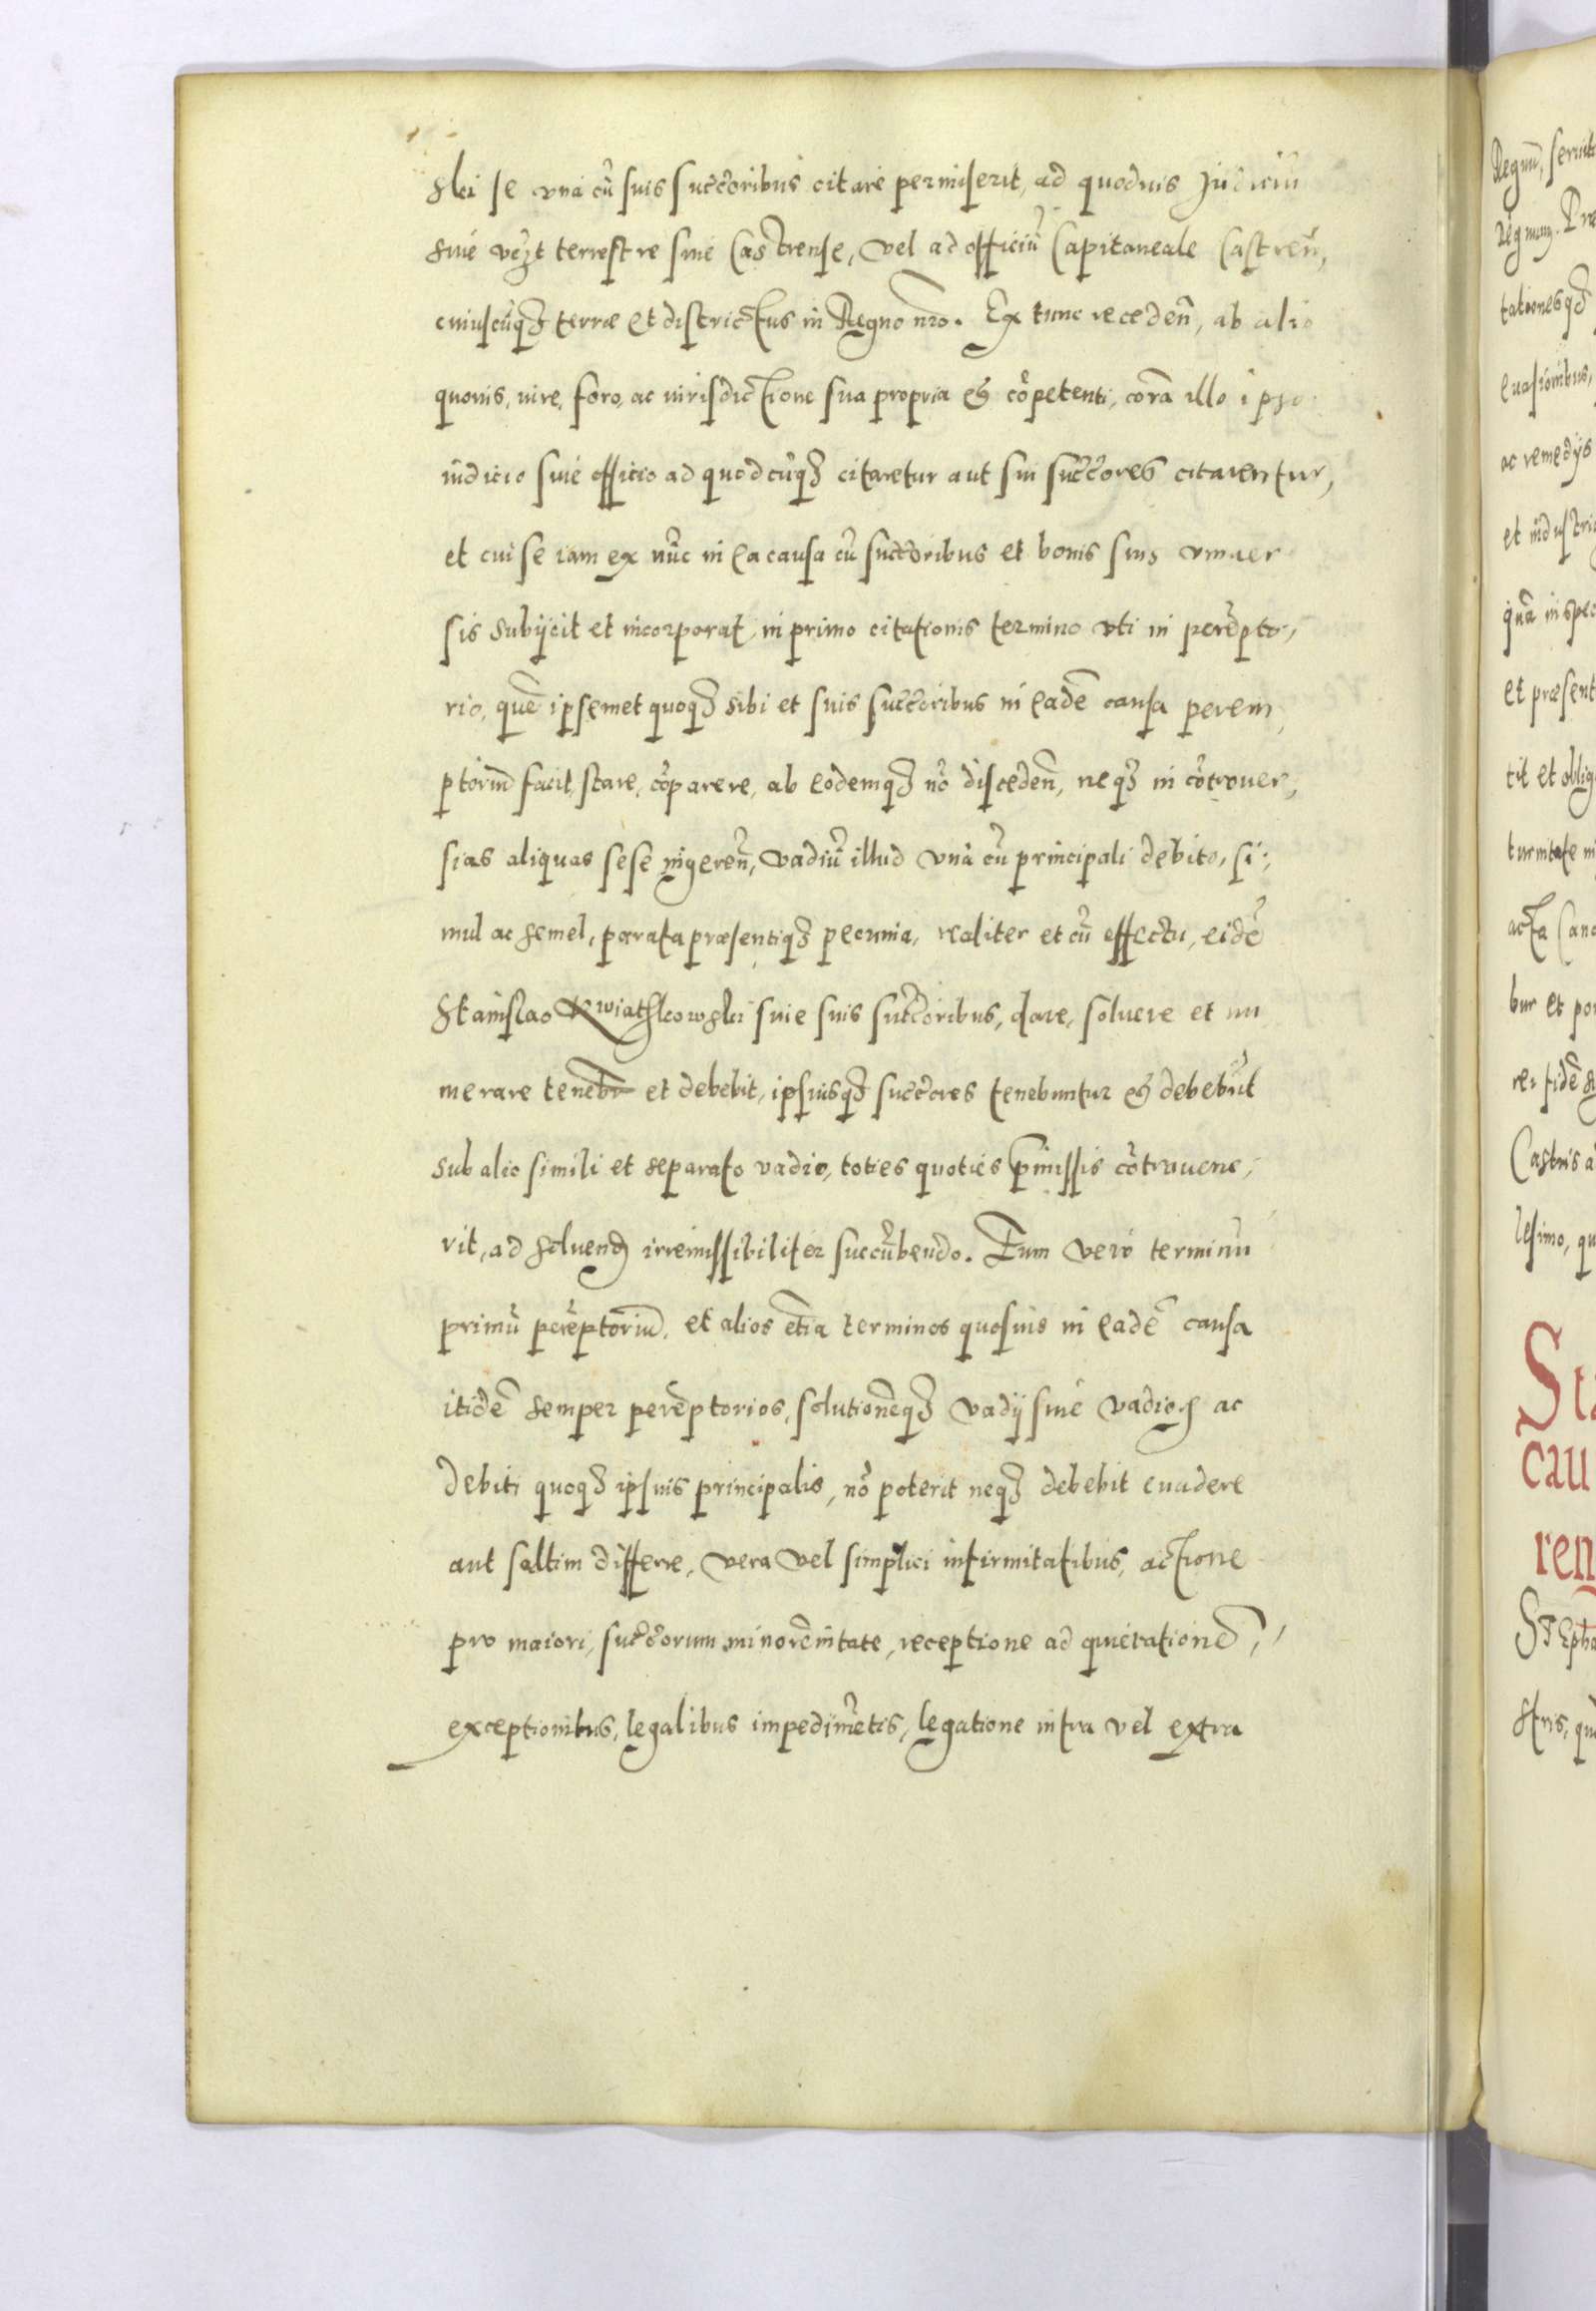 ski se vnà cũ suis succ̃oribus citare permiserit, ad quoduis Judiciũ
siue vẽzt terrestre siue Castrense, vel ad officiũ Capitaneale Castreñ,
cuiuscũqꝫ terræ et districtus in Regno nr̃o. Ex tunc recedeñ, ab alio
quouis, iure, foro, ac iurisdictione sua propria et cõpetenti, corã illo ipso
iudicio siue officio ad quodcũqꝫ citaretur aut sui succ̃ores citarentur,
et cui se iam ex nũc in ea causa cũ succ̃oribus et bonis suis vniuer
sis subijcit et incorporat, in primo citationis termino vti in perẽpto,
rio, quẽ ipsemet quoqꝫ sibi et suis succ̃oribus in eadẽ causa perem,
ptoriũ facit, stare, cõparere, ab eodemqꝫ nõ discedeñ, neqꝫ in cõtrouer,
sias aliquas sese ingereñ, vadiũ illud vnà cũ principali debito, si,
mul ac semel, parata præsentiqꝫ pecunia, realiter et cũ effectu, eidẽ
Stanislao Kwiathkowski siue suis succ̃oribus, dare, soluere et nu
merare tenebr̃ et debebit, ipsiusqꝫ succ̃ores tenebuntur et debebũt
sub alio simili et separato vadio, toties quoties p̃missis cõtrauene,
rit, ad soluend irremissibiliter succũbendo. Eum verò terminũ
primũ perẽptoriũ, et alios etiã terminos quosuis in eadẽ causa
itidẽ semper perẽptorios, solutionẽqꝫ vadij siue vadioꝝ ac
debiti quoqꝫ ipsius principalis, nõ poterit neqꝫ debebit euadere
aut saltim differre, vera vel simplici infirmitatibus, actione
pro maiori, succ̃orum minorẽnitate, receptione ad quietationẽ,
exceptionibus, legalibus impedimẽtis, legatione intra vel extra
Regnũ, seruit
Regnum. Præ
tationesqꝫ
euasionibus,
ac remedijs
et industri
quã in spec
et præsent
tit et oblig
turnitate in
acta Canc
bur et por
rei fidẽ s
Castris a
lesimo, qu
Sta
cau
ren
Stepha
stris, qu